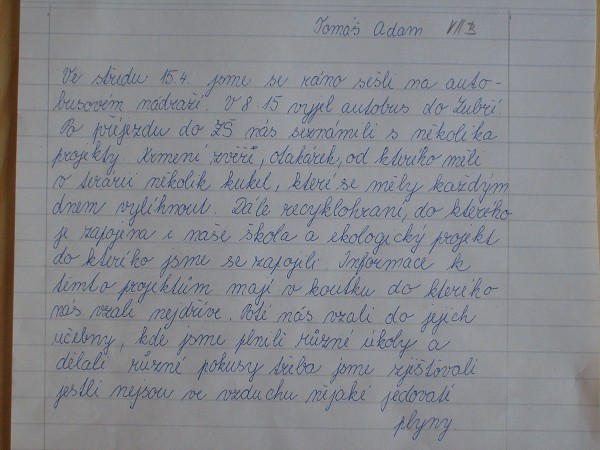 Tomáš Adam VII.B
Ve středu 15.4. jsme se ráno sešli na auto-
busovém nádraží. V 8.15 vyjel autobus do Zubří.
Po příjezdu do ZŠ nás seznámili s několika
projekty Krmení zvěře, otakárek, od kterého měli
v teráriu několik kukel, které se měly každým
dnem vylíhnout. Dále recyklohraní, do kterého
je zapojena i naše škola a ekologický projekt
do kterého jsme se zapojili. Informace k
těmto projektům mají v koutku do kterého
nás vzali nejdříve. Poté nás vzali do jejich
učebny, kde jsme plnili různé úkoly a
dělali různé pokusy třeba jsme zjišťovali
jestli nejsou ve vzduchu nějaké jedovaté
plyny.